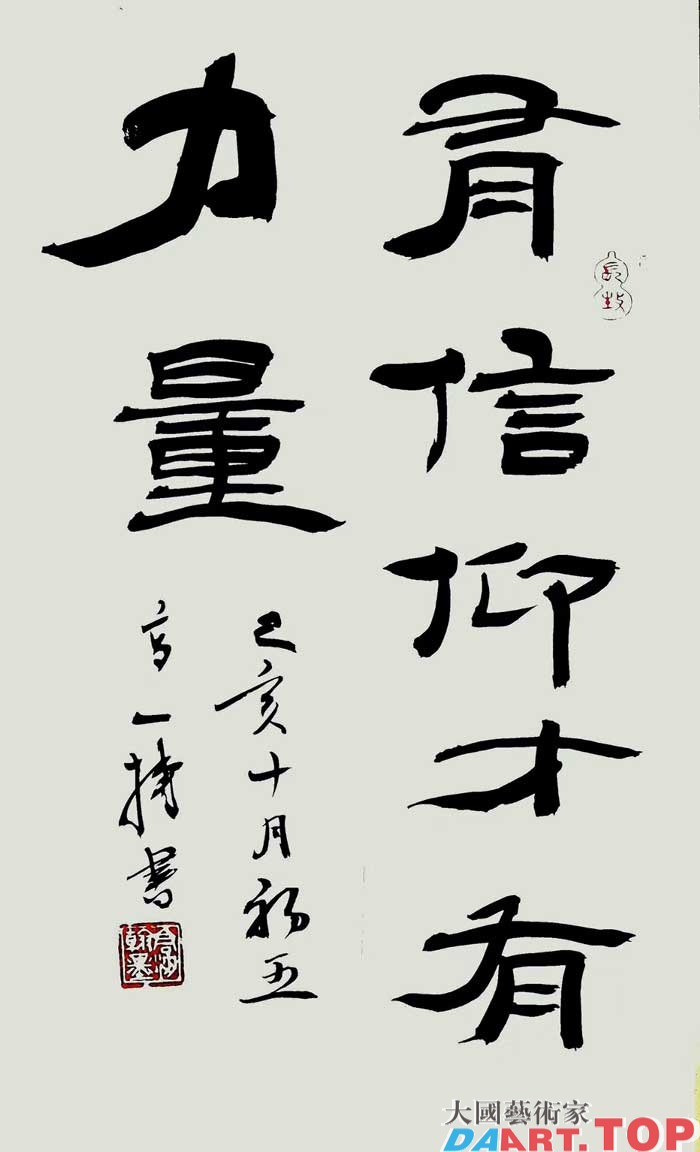 有信仰才有
力量
己亥十月初五
高一捷書
大國藝術家
DAART.TOP